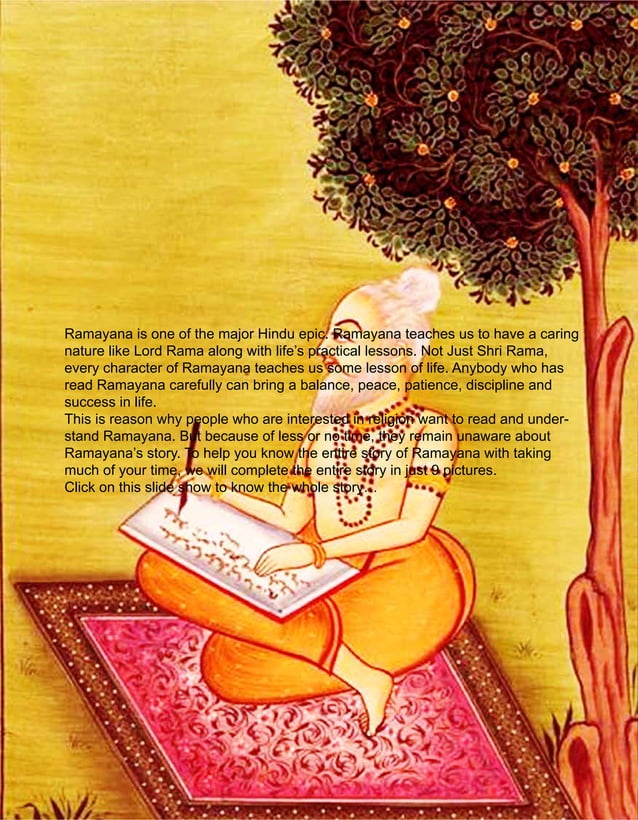 Ramayana is one of the major Hindu epic. Ramayana teaches us to have a caring
nature like Lord Rama along with life's practical lessons. Not Just Shri Rama,
every character of Ramayana teaches us some lesson of life. Anybody who has
read Ramayana carefully can bring a balance, peace, patience, discipline and
success in life.
This is reason why people who are interested in religion want to read and under-
stand Ramayana. But because of less or no time, they remain unaware about
Ramayana's story. To help you know the entire story of Ramayana with taking
much of your time, we will complete the entire story in just 9 pictures.
Click on this slide show to know the whole story...